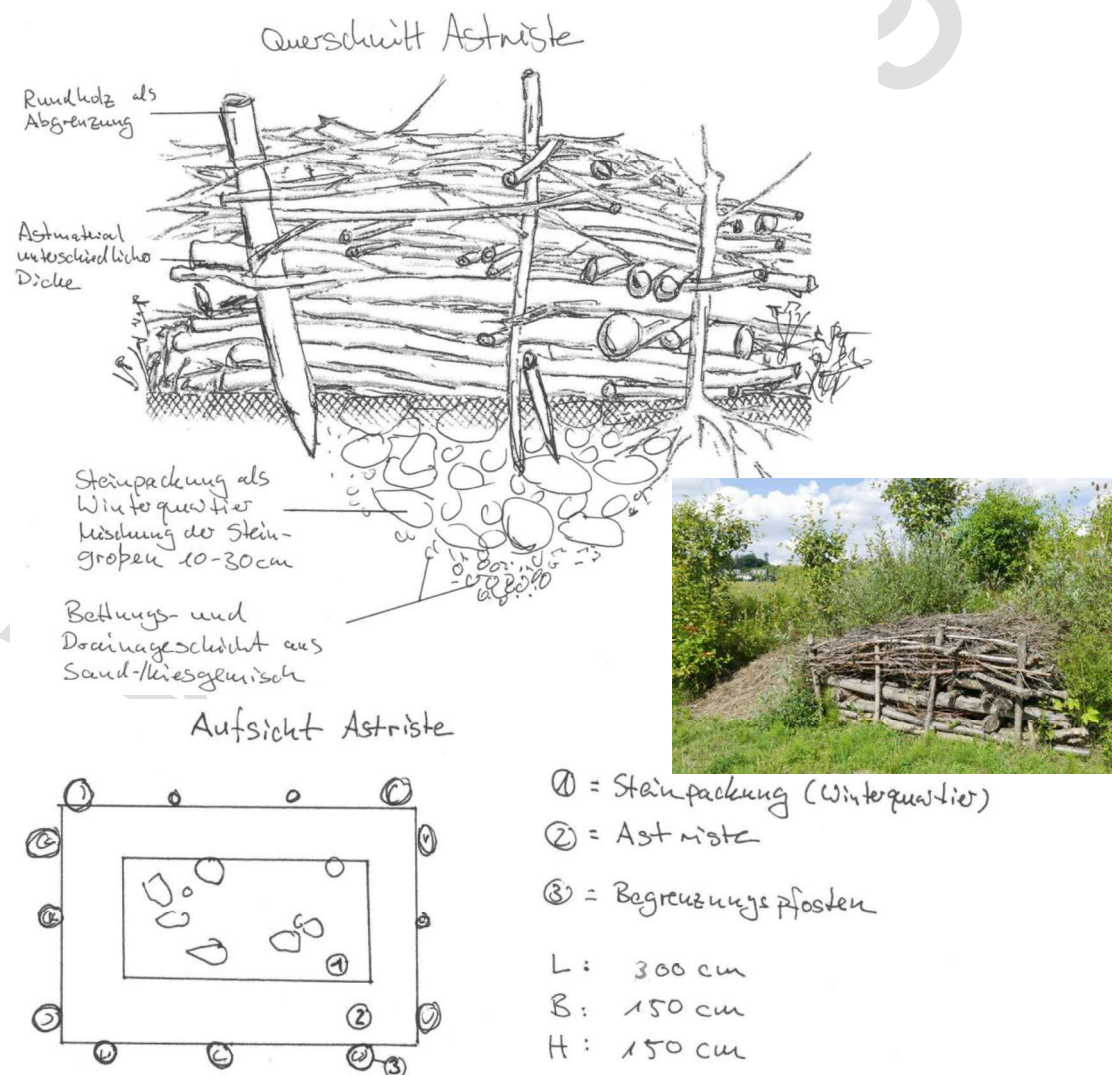 Querschnitt Astriste
Rundholz als
Abgrenzung
Astmaterial
unterschiedliche
Dicke
Steinpackung als
Winterquartier
Mischung der Stein-
größen 10-30cm
Bettungs- und
Drainageschicht aus
Sand-/Kiesgemisch
Aufsicht Astriste
1 = Steinpackung (Winterquartier)
2 = Astriste
3 = Begrenzungspfosten
L: 300 cm
B: 150 cm
H: 150 cm
1
2
3